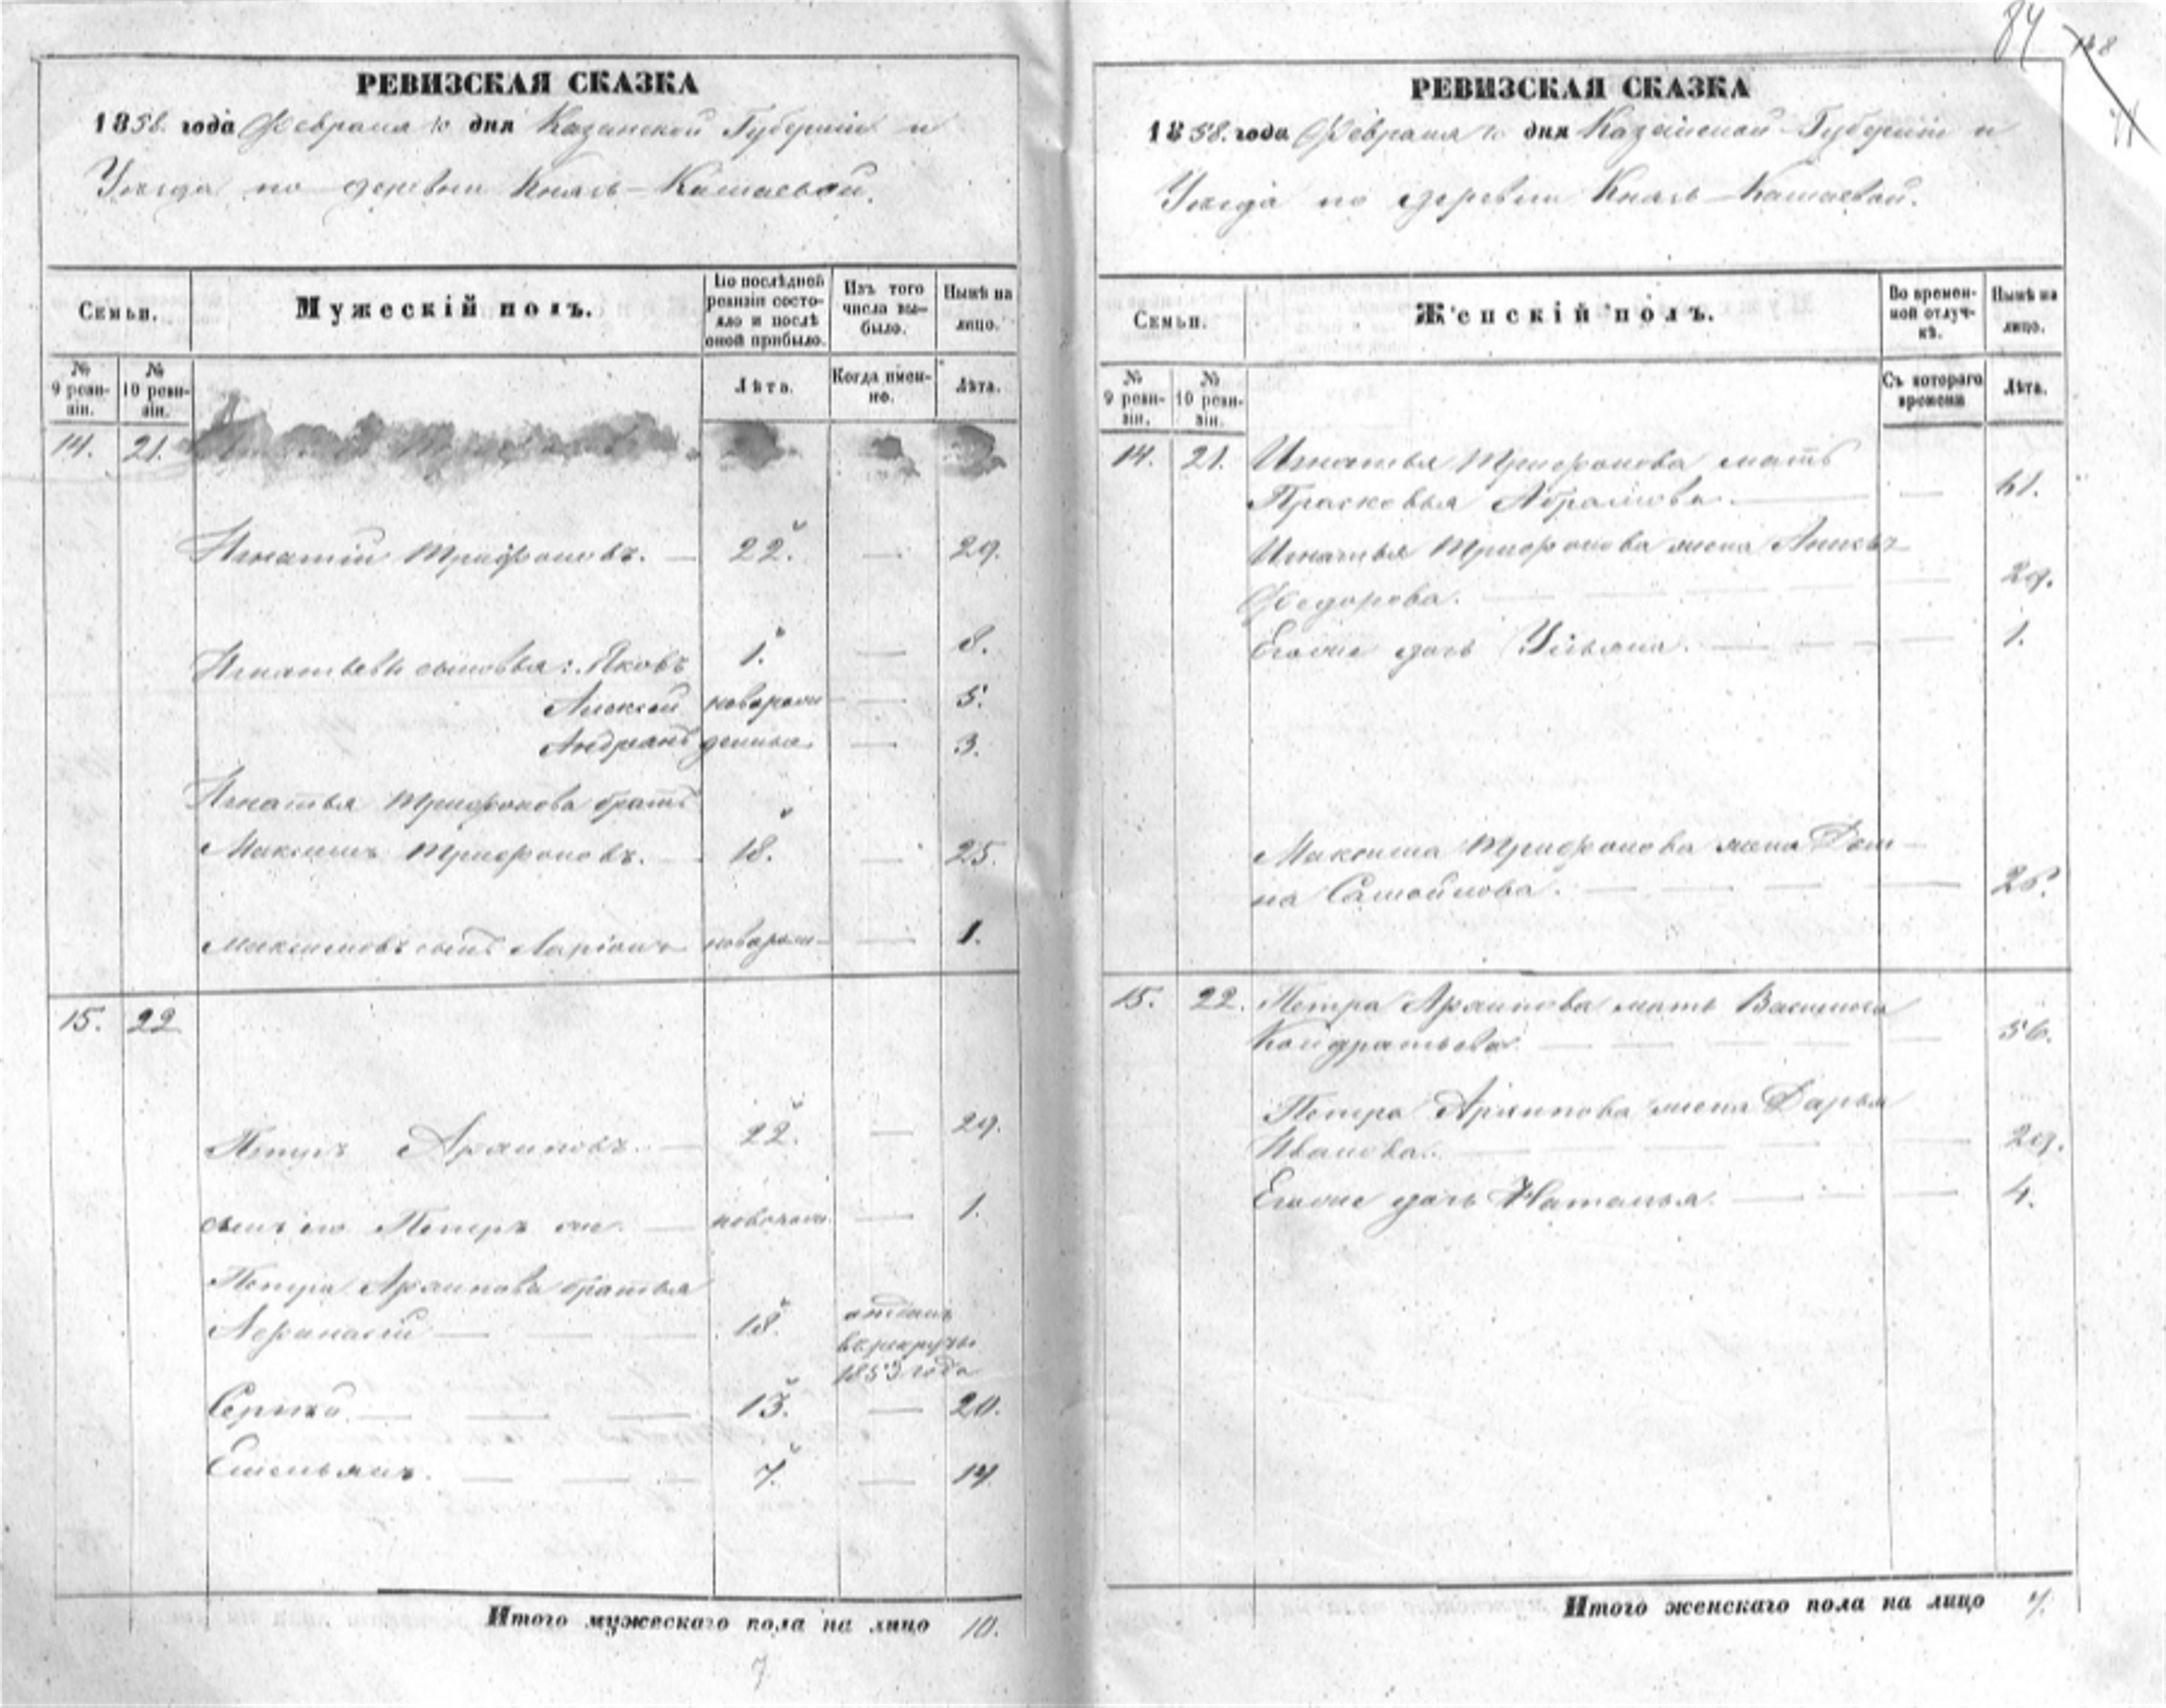 84
РЕВИЗСКАЯ СКАЗКА
1858. года Февраля 10 дня Казанской Губернии и
Уезда по деревни Князь-Камаевой.
Семьи.
Мужескій полъ.
По послѣдней ревизіи состояло и послѣ оной прибыло.
Изъ того числа выбыло.
Нынѣ на лицо.
№ 9 ревизіи.
№ 10 ревизіи.
Лѣта.
Когда именно.
Лѣта.
14. 21.
Игнатій Трифоновъ. — 22. — 29.
Игнатьевы сыновья: Яковъ 1. — 8.
Алексей новорож — 5.
Андреянъ денныя — 3.
Игнатья Трифонова братъ
Максимъ Трифоновъ. — 18. — 25.
Максимовъ сынъ Ларіонъ новорож — 1.
15. 22
Петръ Архиповъ. — 22. — 29.
сынъ его Петръ же. — новорож. — 1.
Петра Архипова братья
Афанасій — 18. отданъ
въ рекруты
1853 года
Сергѣй — 13. — 20.
Емельянъ. — 7. — 14
Итого мужескаго пола на лицо 10.
7
РЕВИЗСКАЯ СКАЗКА
1858. года Февраля 10 дня Казанской Губерніи и
Уезда по деревни Князь-Камаевой.
Семьи.
Женскій полъ.
Во временной отлучкѣ.
Нынѣ на лицо.
№ 9 ревизіи.
№ 10 ревизіи.
Съ котораго времени
Лѣта.
14. 21. Игнатья Трифонова мать
Прасковья Абрамова. — 61.
Игнатья Трифонова жена
Федорова. — 29.
Егоже дочь Ульяна. — 1.
Максима Трифонова жена Дом-
на Самойлова. — 26.
15. 22. Петра Архипова мать Василиса
Кондратьева. — 56.
Петра Архипова жена Дарья
Иванова. — 29.
Егоже дочь Наталья. — 4.
Итого женскаго пола на лицо 7.